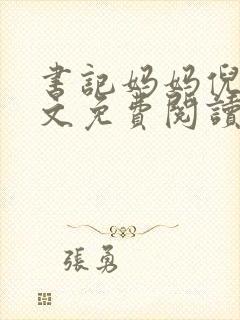 書記妈妈倪
文免費閱讀
張勇